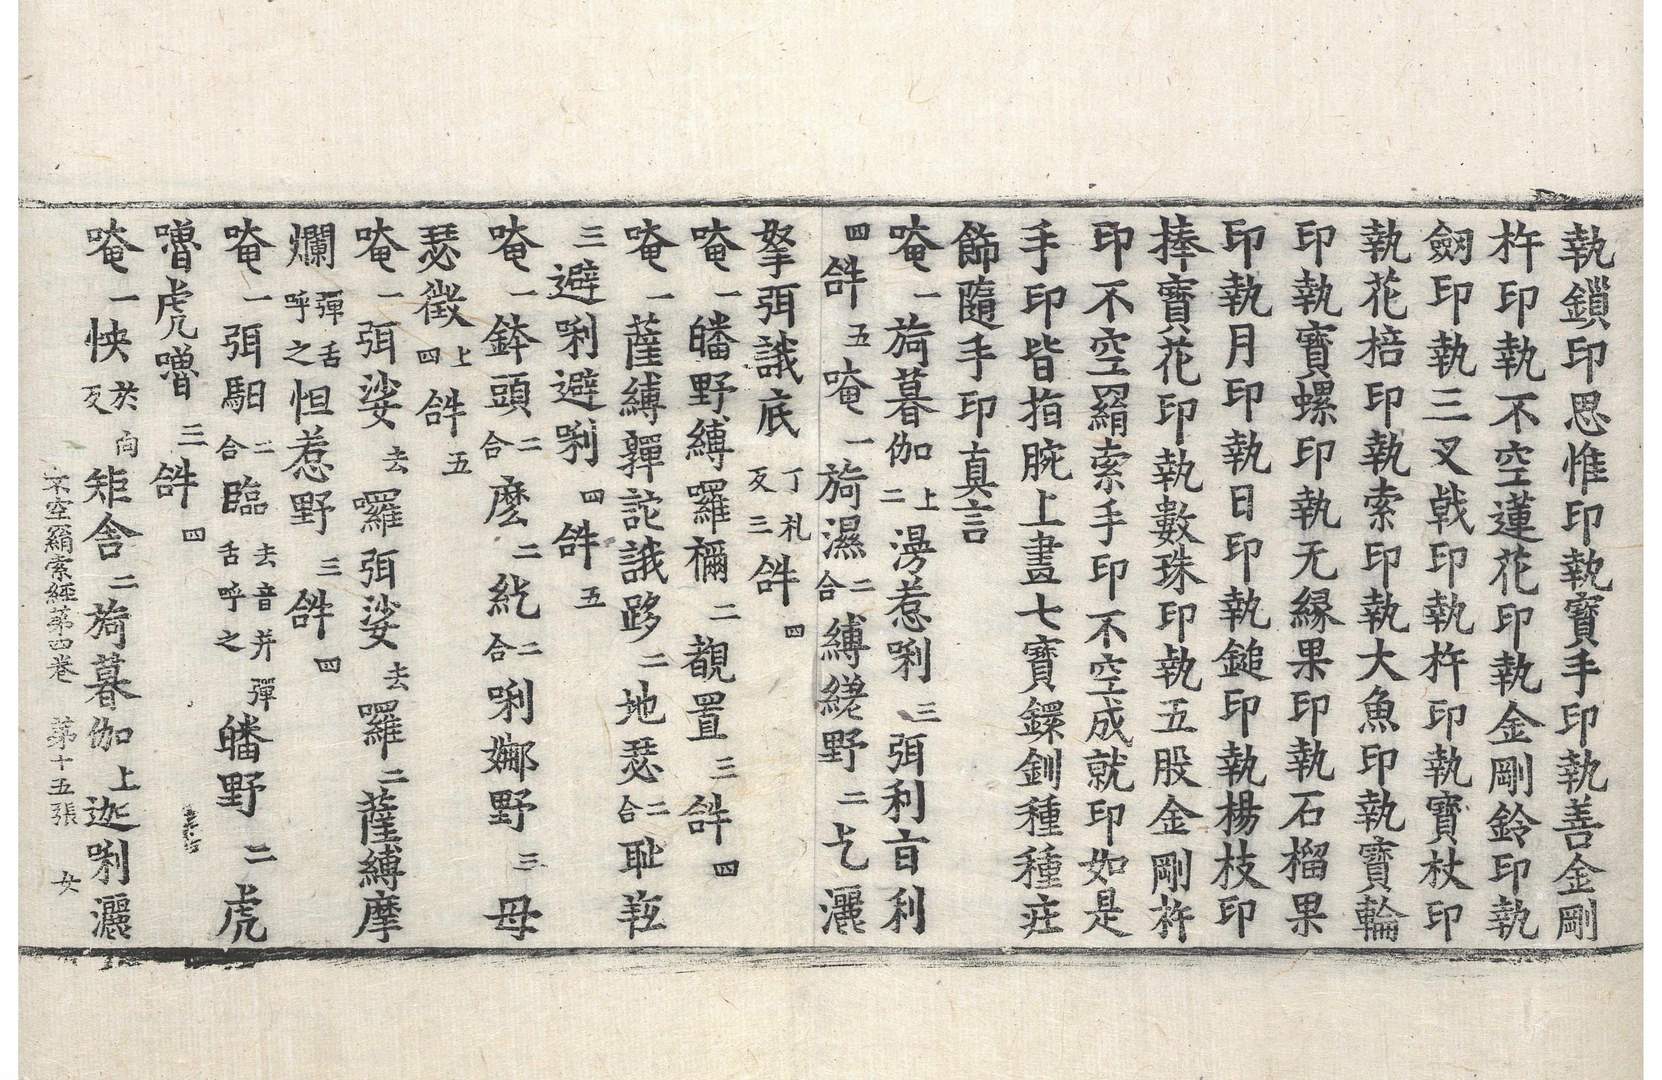 執鎖印思惟印執寳手印執善金剛
杵印執不空蓮花印執金剛鈴印執
劔印執三叉戟印執杵印執寳杖印
執花棓印執索印執大魚印執寳輪
印執寳螺印執无緣果印執石榴果
印執月印執日印執鎚印執楊枝印
捧寳花印執數珠印執五股金剛杵
印不空羂索手印不空成就印如是
手印皆指腕上畫七寳鐶釧種種莊
飾隨手印真言
唵一旖暮伽上二澇惹唎三弭利盲利
四𤙖五唵一旖濕二合縛繼野二𠯆灑
拏弭誐底丁礼反三𤙖四
唵一皤野縛囉禰二覩置三𤙖四
唵一薩縛嚲詑誐跢二地瑟二合耻䓯
三避唎避唎四𤙖五
唵一鉢頭二合麽二紇二合唎娜野三母
瑟徵上四𤙖五
唵一弭娑去囉弭娑去囉二薩縛摩
爛彈舌呼之怛惹野三𤙖四
唵一弭馹二合臨去音并彈舌呼之皤野二虎
嚕虎嚕三𤙖四
唵一怏炎向反矩舍二旖暮伽上迦唎灑
不空羂索經第四卷 第十五張 女